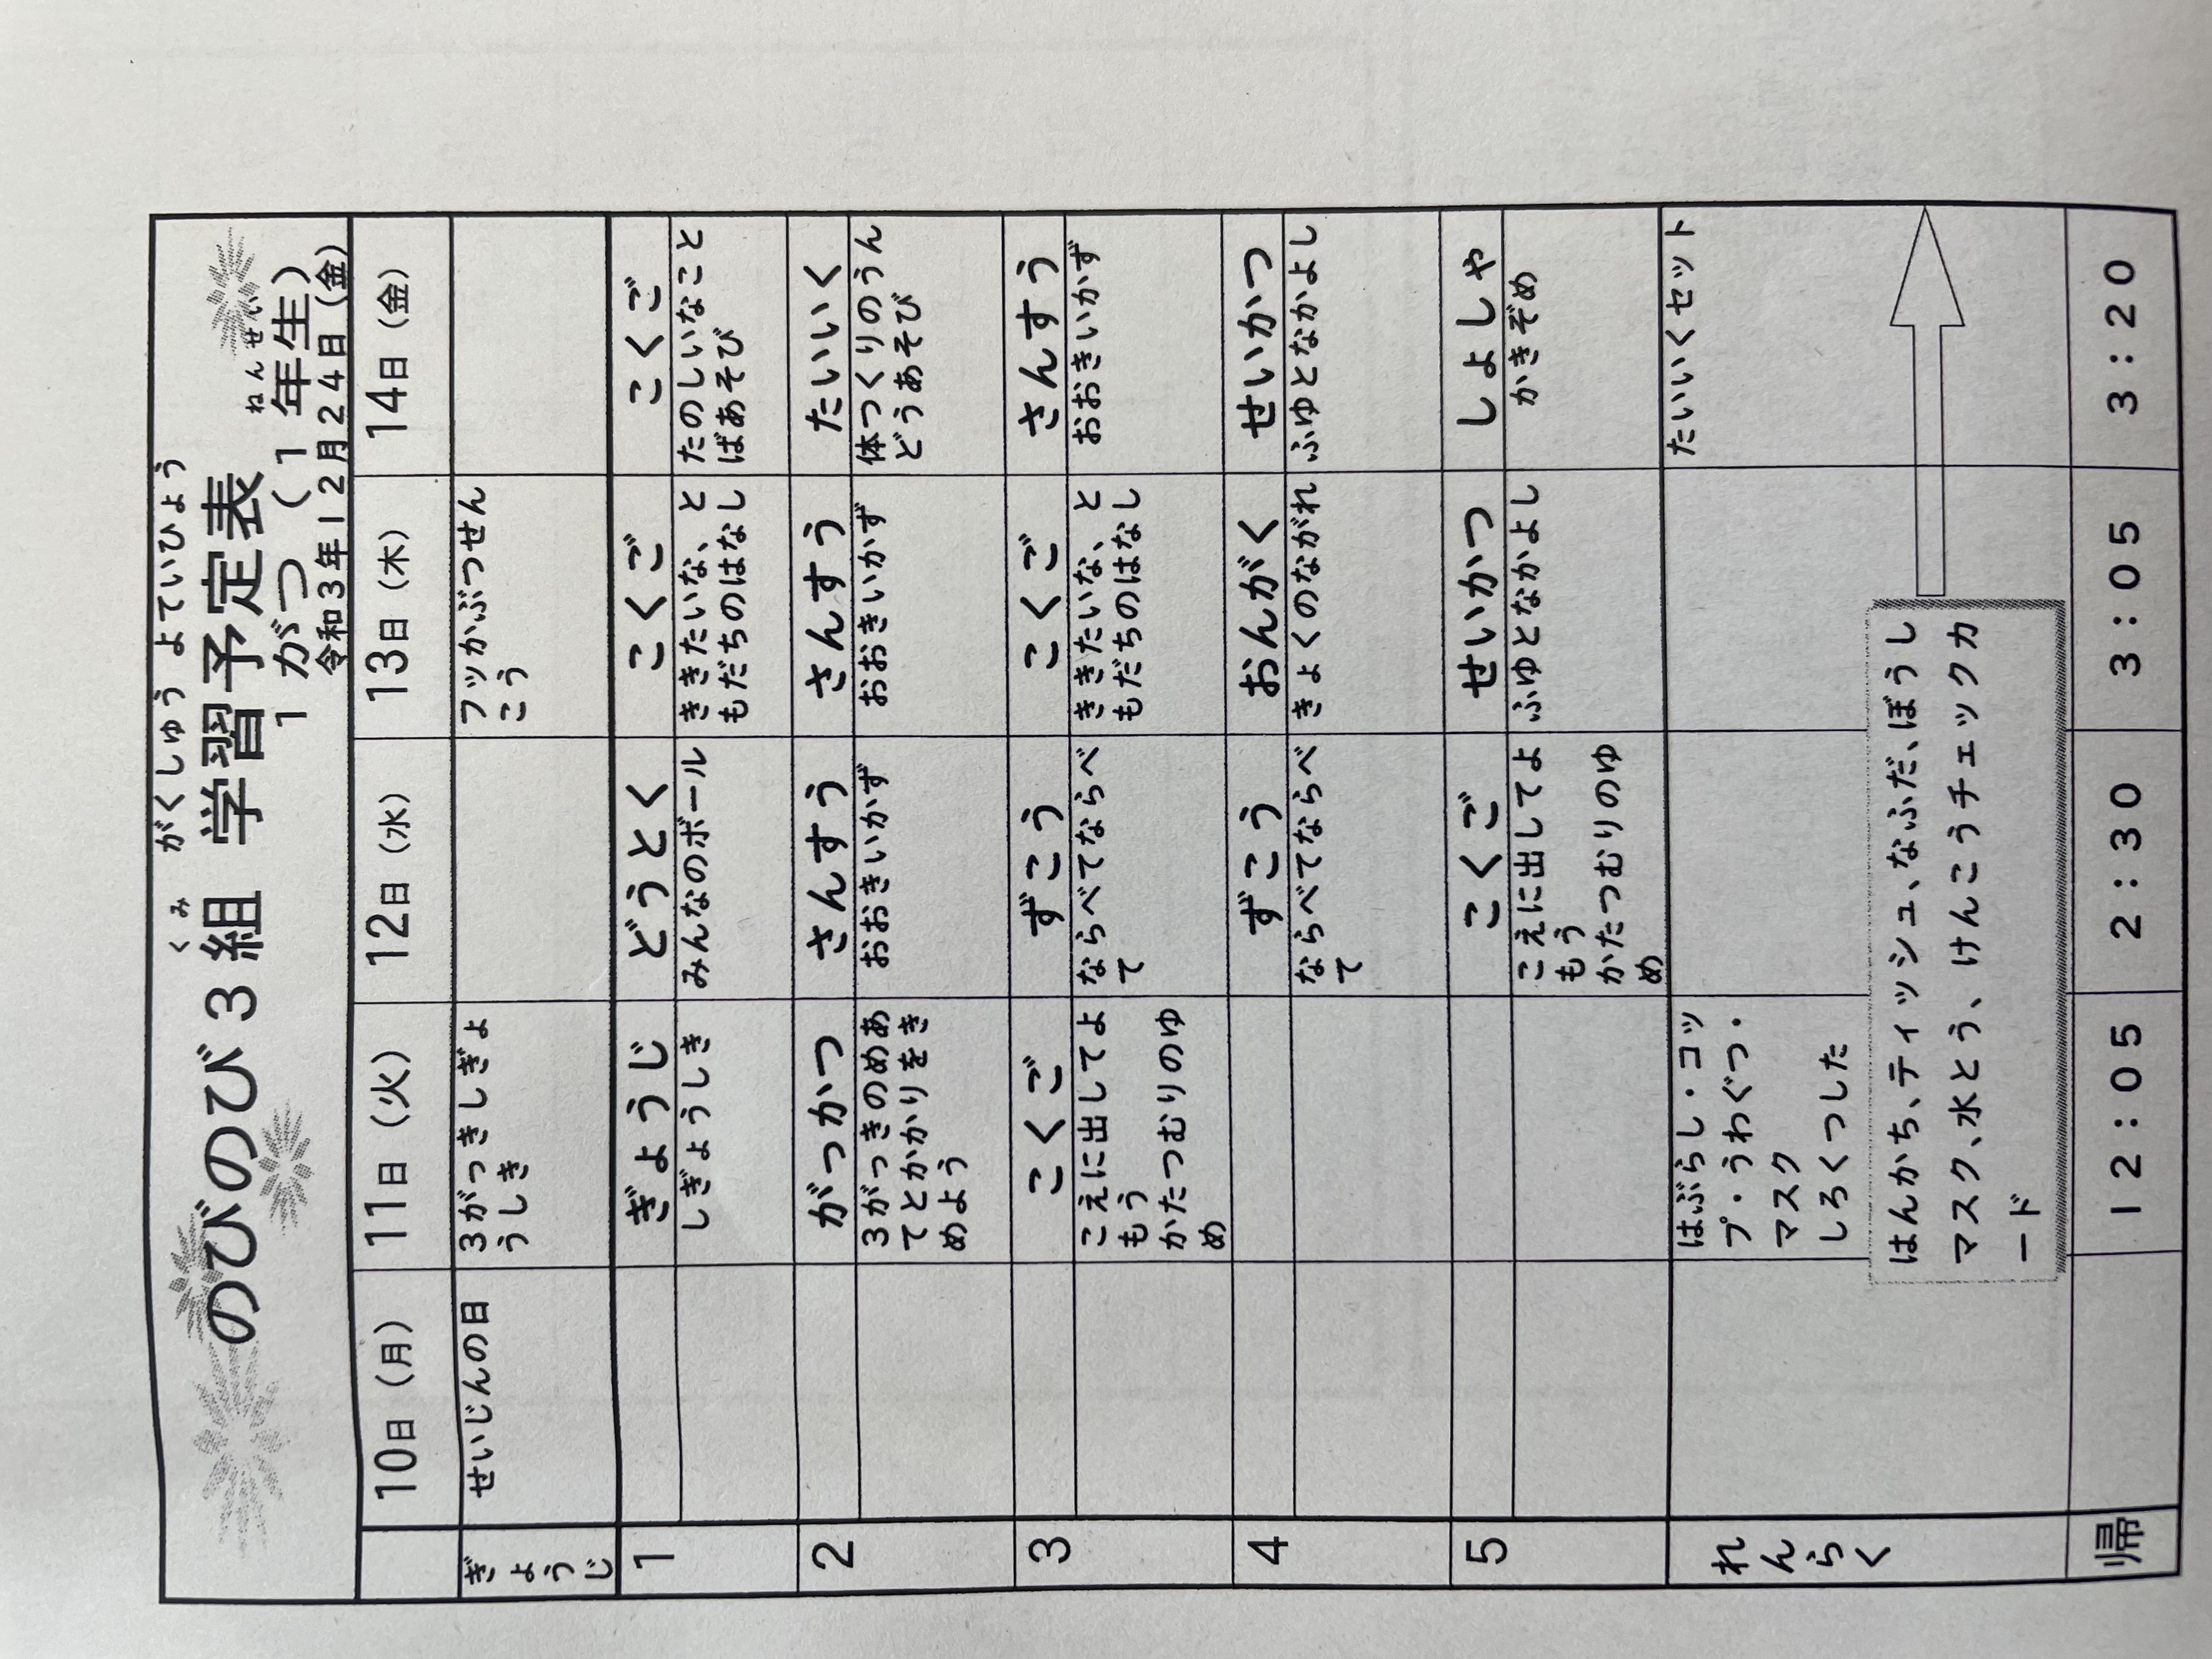 くみ がくしゅう よていひょう
のびのび３組 学習予定表
ねんせい
１がつ（１年生）
令和３年１２月２４日（金）
10日（月） 11日（火） 12日（水） 13日（木） 14日（金）
ぎょうじ
せいじんの日
３がっきしぎょ
うしき
フッかぶつせん
こう
1
ぎょうじ どうとく こくご こくご
しぎょうしき
みんなのボール
ききたいな、と
もだちのはなし
たのしいなこと
ばあそび
2
がっかつ さんすう さんすう たいいく
３がっきのめあ
てとかかりをき
めよう
おおきいかず
おおきいかず
体つくりのうん
どうあそび
3
こくご ずこう こくご さんすう
こえに出してよ
もう
かたつむりのゆ
め
ならべてならべ
て
ききたいな、と
もだちのはなし
おおきいかず
4
ずこう おんがく せいかつ
ならべてならべ
て
きょくのながれ
ふゆとなかよし
5
こくご せいかつ しょしゃ
こえに出してよ
もう
かたつむりのゆ
め
ふゆとなかよし
かきぞめ
れんらく
はぶらし・コッ
プ・うわぐつ・
マスク
しろくつした
たいいくセット
はんかち、ティッシュ、なふだ、ぼうし
マスク、水とう、けんこうチェックカ
ード
帰 １２：０５ ２：３０ ３：０５ ３：２０